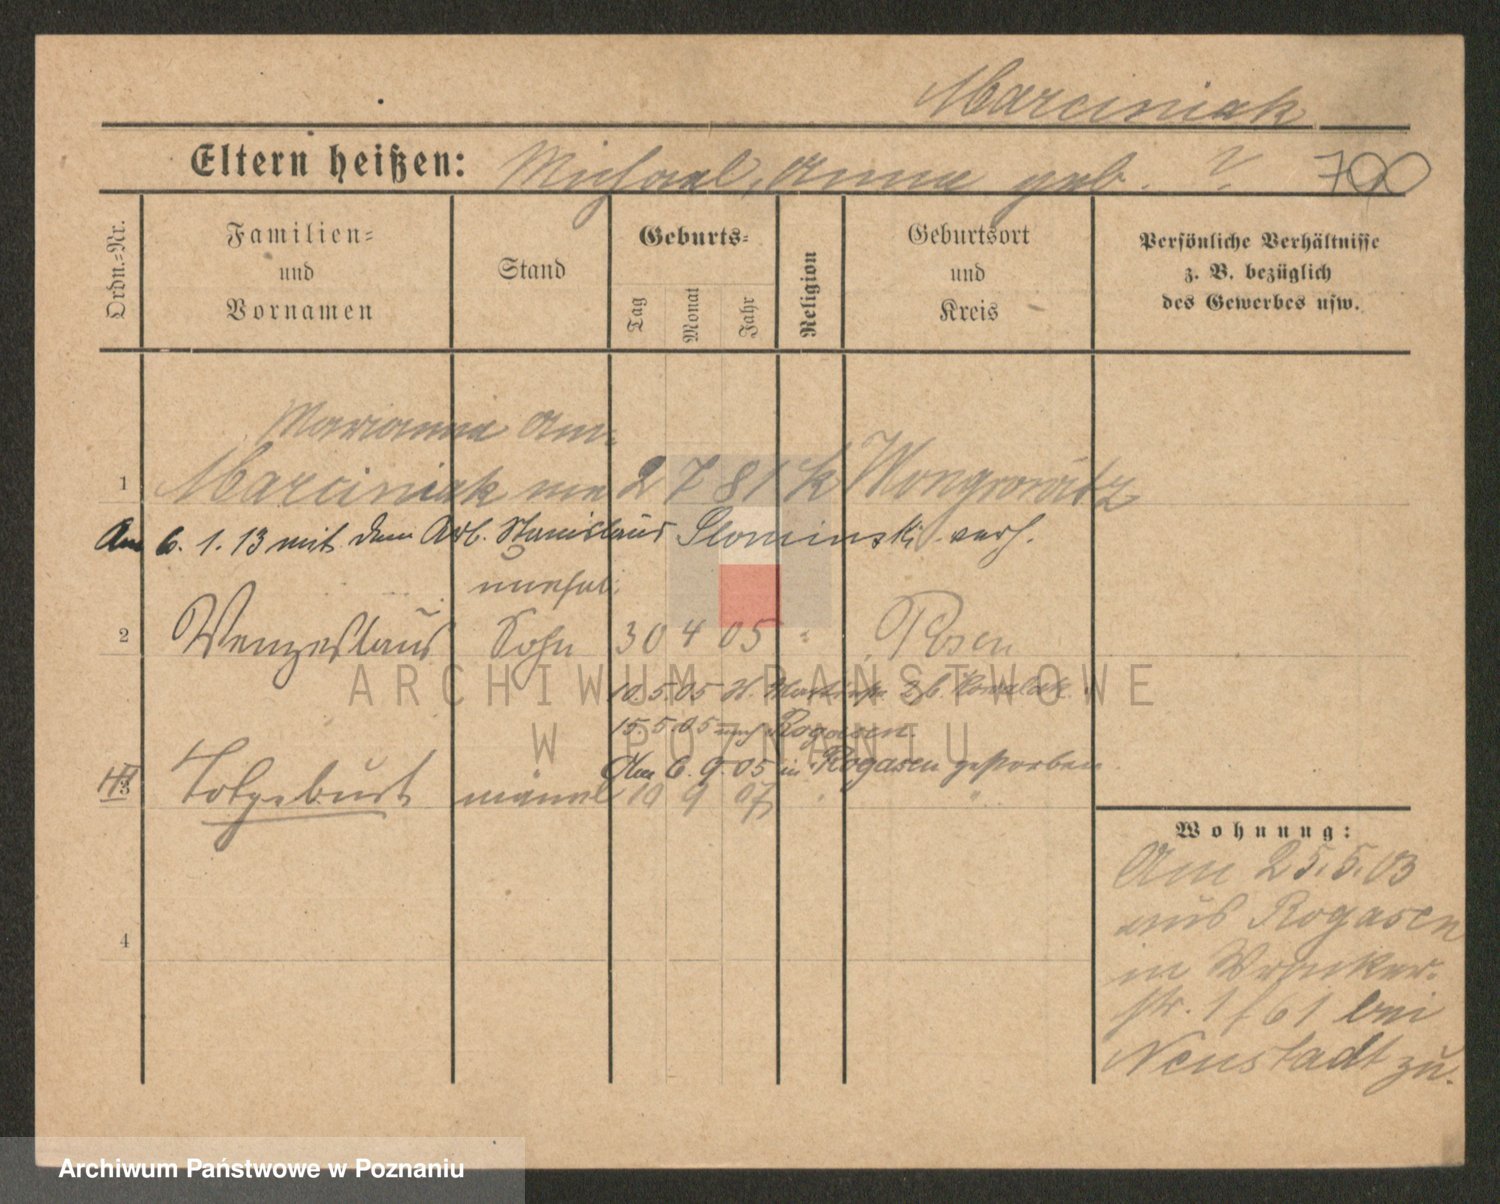 Marciniak
Eltern heißen: Michael, Anna geb. ?. 790
Ordn.-Nr.
Familien-
und
Vornamen
Stand
Geburts-
Tag
Monat
Jahr
Religion
Geburtsort
und
Kreis
Persönliche Verhältnisse
z. B. bezüglich
des Gewerbes usw.
Marianna
1 Marciniak 2 7 81 k Wongrowitz
Am 6. 1. 13 mit dem Arb. Stanislaus Slominski verh.
unehel.
2 Wenzeslaus Sohn 30 4 05 " Posen
ARCHIWUM PAŃSTWOWE
10.5.05 Kowalak
15.5.05 nach Rogasen.
W POZNANIU
Am 6. 9. 05 in Rogasen gestorben
3 Totgeburt männl 19 9 07 " "
Wohnung:
Am 25.5.03
aus Rogasen
in Wronker-
str. 1 / 61 bei
Neustadt zu.
4
Archiwum Państwowe w Poznaniu